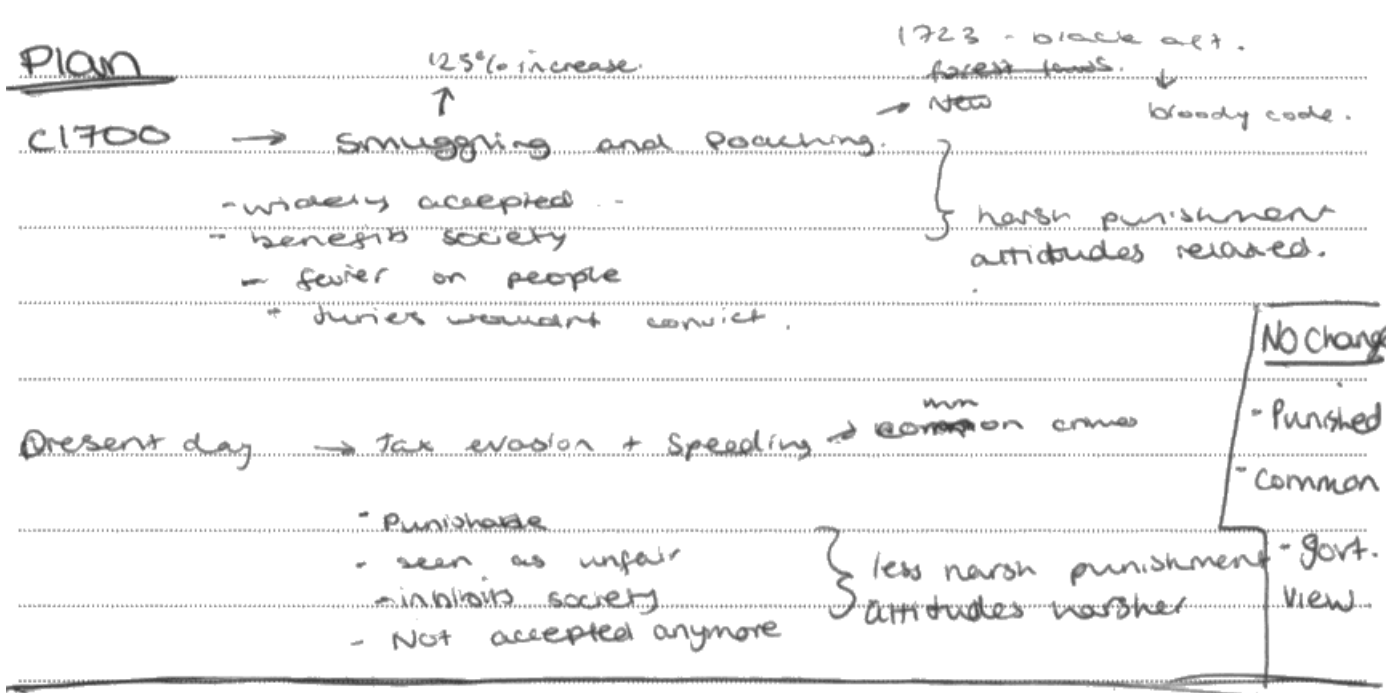 Plan
125% increase.
1723 - black act.
forest laws.
↑
→ New
↓
bloody code.
c1700 → Smuggling and Poaching.
- widely accepted -
- benefits society
- fewer on people
- Juries wouldnt convict.
} harsh punishment
attitudes relaxed.
No Change
- Punished
- Common
- govt.
view
Present day → Tax evasion + Speeding → common crimes
- Punishable
- seen as unfair
- inhibits society
- Not accepted anymore
} less harsh punishment
attitudes harsher